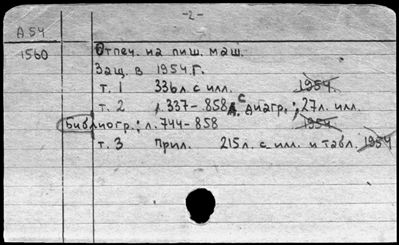 -2-
А 54
1560 Отпеч. на пиш. маш.
Защ. в 1954 г.
т. 1 336л с илл. 1954
т. 2 л. 337-858 с диагр.; 27л. илл.
Библиогр.; л. 744-858 1954
т. 3 Прил. 215 л. с илл. и табл. 1954